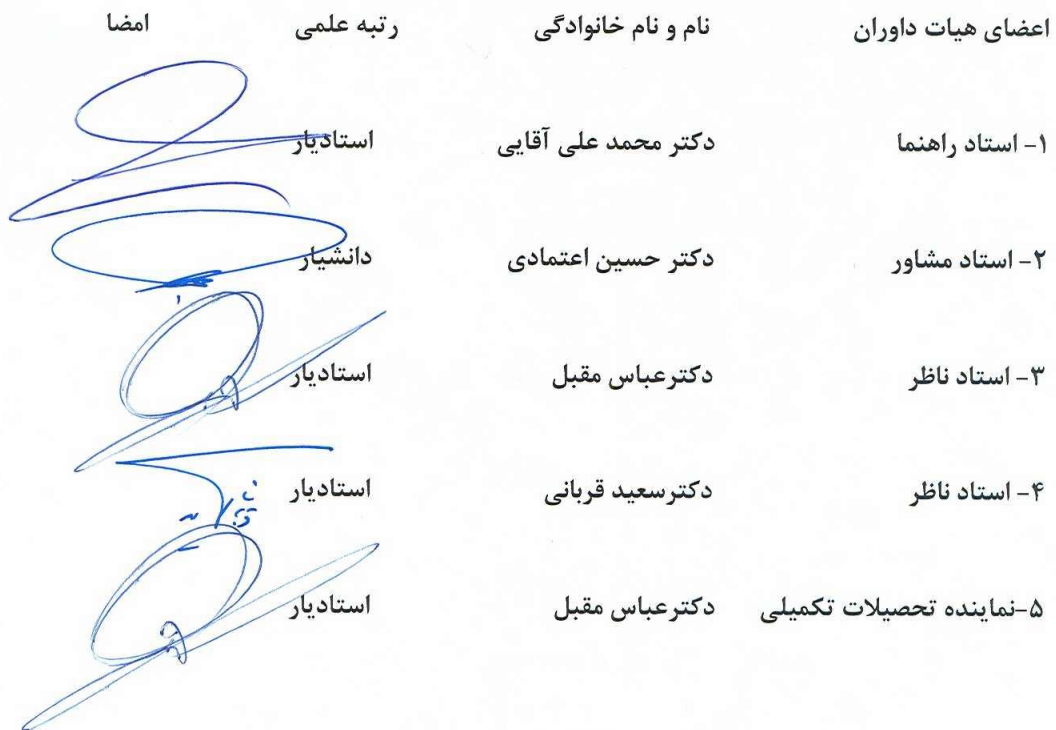 اعضای هیات داوران نام و نام خانوادگی رتبه علمی امضا
۱- استاد راهنما دکتر محمد علی آقایی استادیار
۲- استاد مشاور دکتر حسین اعتمادی دانشیار
۳- استاد ناظر دکترعباس مقبل استادیار
۴- استاد ناظر دکترسعید قربانی استادیار
۵-نماینده تحصیلات تکمیلی دکترعباس مقبل استادیار